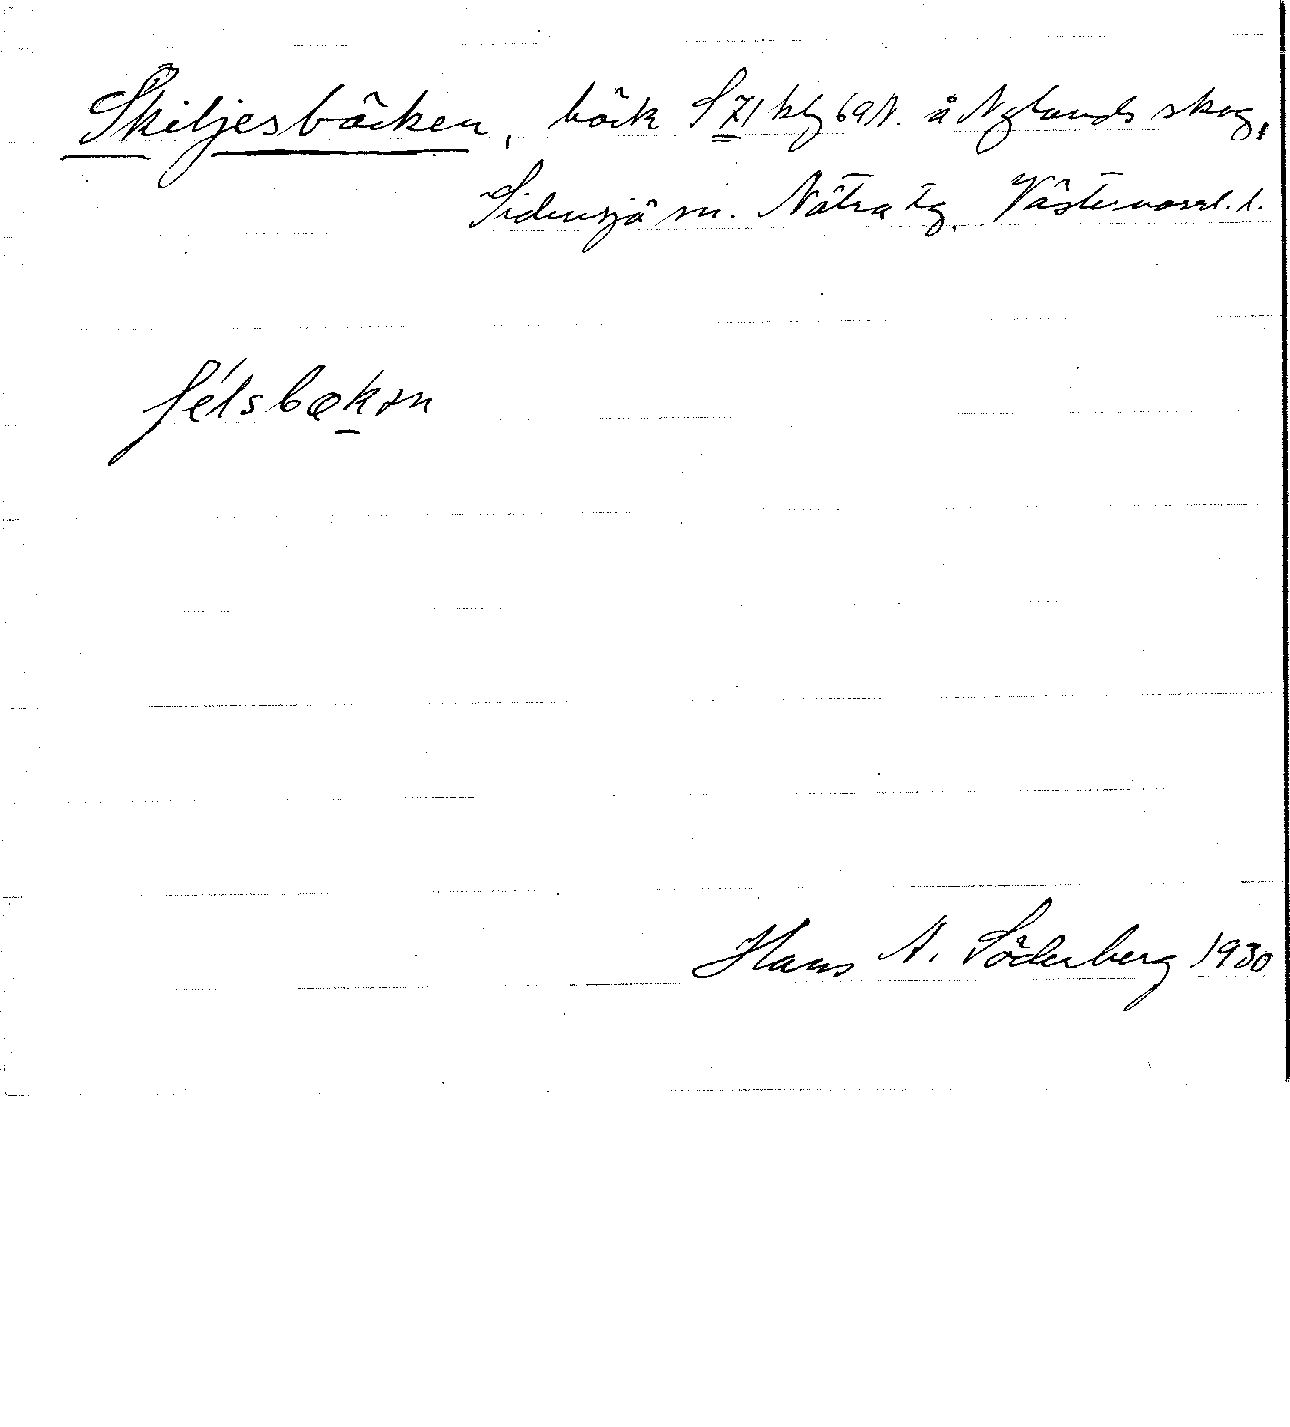 Skiljesbäcken, bäck S 71 klg 69 N. å Nylands skog,
Sidensjö sn. Nätra tg. Västernorrl. l.
ʃélsbækən
Hans A. Söderberg 1930